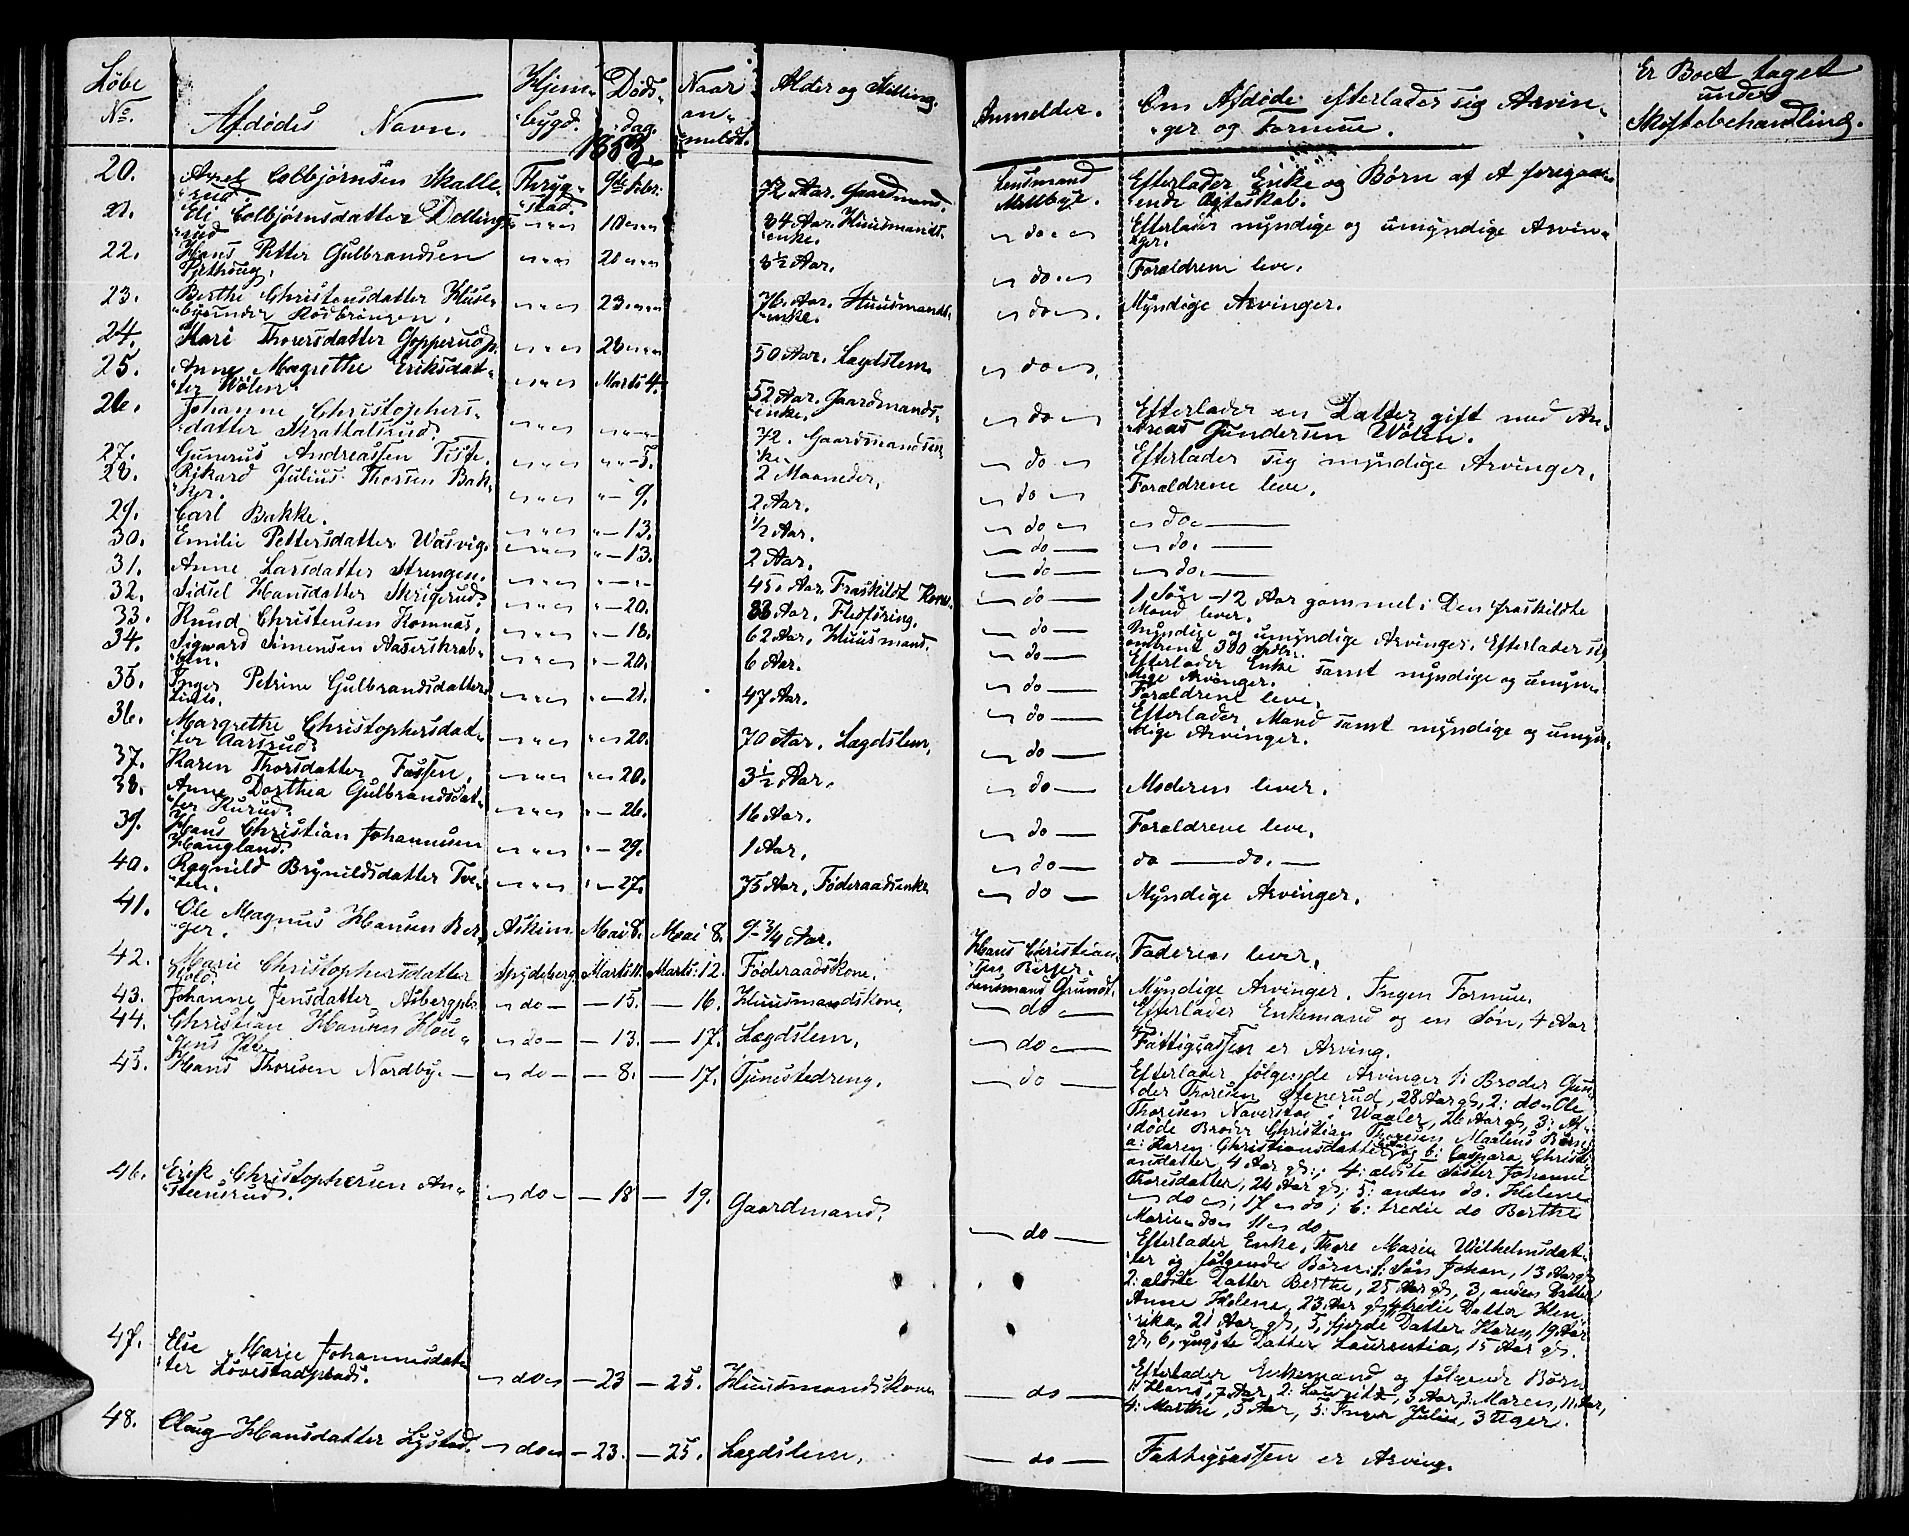 Løbe No. | Afdødes Navn. | Hjem- bygd. | Døds- dag. | Naar an- meldt. | Alder og Stilling. | Anmelder. | Om Afdøde efterlader sig Arvin- ger og Formue. | Er Boet taget under Skiftebehandling.
20. Colbjørnsen Skalle- rud | Thryg- stad. | 9de Febr: | 72 Aar. Gaardmand. | Lensmand | Efterlader Enke og Børn af et foregaa- ende Ægteskab.
21. Eli Colbjørnsdatter Dotlings- rud | 10 | 34 Aar. Huusmands- enke. | do | Efterlader myndige og umyndige Arvin- ger.
22. Hans Petter Gulbrandsen | 20 | 3½ Aar. | do | Forældrene leve.
23. Berthe Christensdatter | 23 | 76 Aar. Huusmands- enke. | do | Myndige Arvinger.
24. Mari Thorersdatter | 28 | 50 Aar. Lægdslem | do
25. Anne Magrethe Eriksdat- ter Wølen. | Marts 4. | 52 Aar. Gaardmands- enke. | do | Efterlader en Datter gift med An- dreas Gundersen Wølen.
26. Johanne Christophers- datter Skrattalsrud. | 72. Gaardmandsen- ke. | do | Efterlader sig myndige Arvinger.
27. Gunerus Andreassen | 5. | 2 Maaneder. | do | Forældrene leve.
28. Rikard Julius Thorsen Bak- ker. | 9. | 2 Aar. | do | do
29. Carl Bakke. | 13. | ½ Aar. | do | do.
30. Emilie Pettersdatter Wasvig. | 13. | 2 Aar. | do | do.
31. Anne Larsdatter Strengen. | 45. Aar. Fraskildt Kone. | do | 1 Søn 12 Aar gammel: Den fraskildte Mand lever.
32. Sidsel Hansdatter Skrigerud. | 20. | 83 Aar. Fledføring. | do | Myndige og umyndige Arvinger. Efterlader sig omtrent 300 Spdlr.
33. Knud Christensen Komnæs. | 18. | 62 Aar. Huusmand. | do | Efterlader Enke samt myndige og umyn- dige Arvinger.
34. Sigward Simensen Aaserskrab- ben. | 20. | 6 Aar. | do | Forældrene leve.
35. Inger Petrine Gulbrandsdatter | 21. | 47 Aar. | do | Efterlader Mand samt myndige og umyn- dige Arvinger.
36. Margrethe Christophersdat- ter Aarsrud. | 20. | 70 Aar. Lægdslem. | do
37. Karen Thorsdatter Fossen. | 20. | 3½ Aar. | do | Moderen lever.
38. Anne Dorthea Gulbrandsdat- ter Kurud. | 26. | 16 Aar. | do | Forældrene leve.
39. Hans Christian Johannesen Haugland. | 29. | 1 Aar. | do | do — do.
40. Ragnild Brynildsdatter Tve- ten. | 27. | 75 Aar. Føderaadsenke | do | Myndige Arvinger.
41. Ole Magnus Hansen Ber- ger. | Askim | Mai 8. | Mai 8. | 9 3/4 Aar. | Hans Christian- sen Berger. | Faderen lever.
42. Marie Christophersdatter | Spydeberg. | Marts 11. | Marts 12. | Føderaadskone. | Lensmand Grundt. | Myndige Arvinger. Ingen Formue.
43. Johanne Jensdatter Asbergpls. | do | 15. | 16. | Huusmandskone. | do | Efterlader Enkemand og en Søn, 4 Aar
44. Christian Hansen Hou- | do | 13. | 17. | Lægdslem. | do | Fattigcassen er Arving.
45. Hans Thoresen Nordby. | do | 8. | 17. | Tjenestedreng. | do | Efterlader følgende Arvinger 1: Broder Gun-
der Thoresen Stenerud, 28 Aar gl, 2: do Ole
Thoresen Naverstad i Waaler, 26 Aar gl, 3: Af-
døde Broder Christian Thoresen Maalens Børn:
a: Karen Christiansdatter og b: Caspara Christi-
ansdatter, 4 Aar gl:, 4: ældste Søster Johanne
Thorsdatter, 24 Aar gl; 5: anden do. Helene
do 17 do; 6: tredie do Berthe
Marie do 11 do
46. Erik Christophersen An- steensrud. | do | 18 | 19. | Gaardmand. | do | Efterlader Enke, Thore Marie Wilhelmsdat-
ter og følgende Børn: 1: Søn Johan, 13 Aar gl
2: ældste Datter Berthe, 25 Aar gl, 3, anden Datter
Anne Helene, 23 Aar gl, 4, tredie Datter Hen-
rika, 21 Aar gl, 5, fjerde Datter Karen, 19 Aar
gl, 6, yngste Datter Laurentia, 15 Aar gl.
47. Else Marie Johannesdat- ter Løvestadplads. | do | 23 | 25. | Huusmandskone | do | Efterlader Enkemand og følgende Børn
1: Hans, 7 Aar, 2: Lauritz, 3 Aar, 3: Maren, 11 Aar,
4: Marthe, 5 Aar, 5: Inger Julie, 3 Uger.
48. Olaug Hansdatter Lystad. | do | 23. | 25. | Lægdslem. | do | Fattigcassen er Arving.